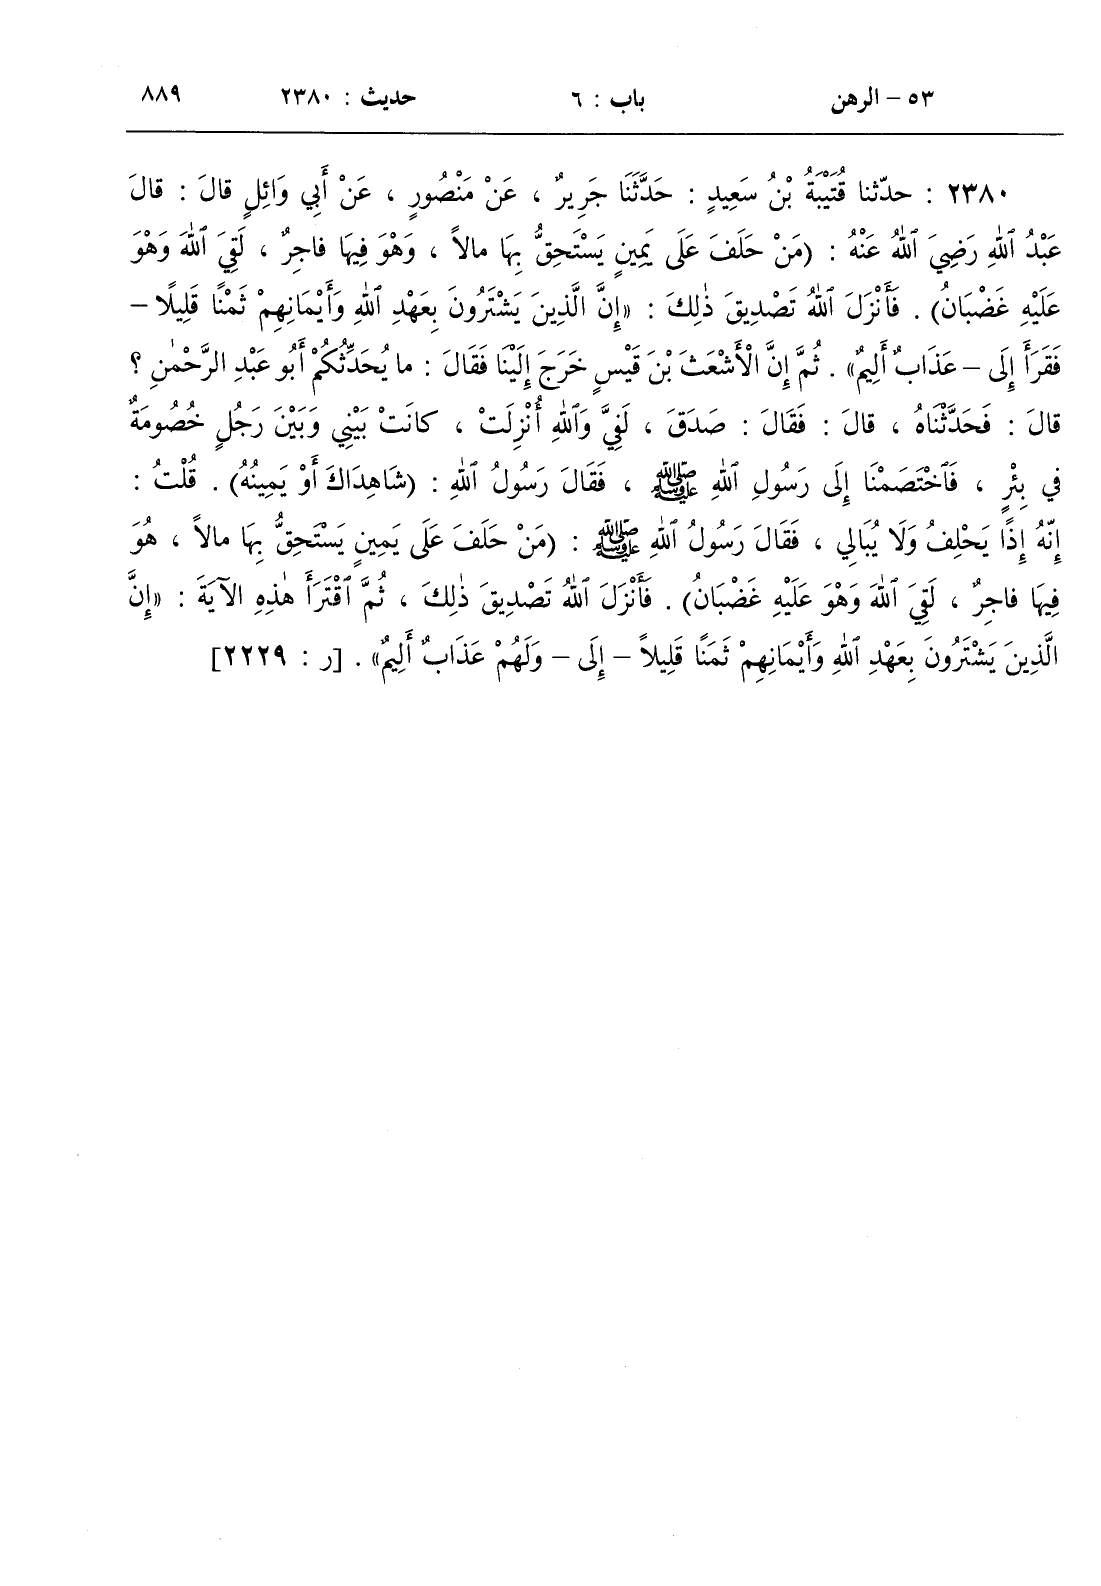 ٥٣ – الرهن باب : ٦ حديث : ٢٣٨٠ ٨٨٩
٢٣٨٠ : حدّثنا قُتَيْبَةُ بْنُ سَعِيدٍ : حَدَّثَنَا جَرِيرٌ ، عَنْ مَنْصُورٍ ، عَنْ أَبِي وَائِلٍ قالَ : قالَ
عَبْدُ ٱللهِ رَضِيَ ٱللهُ عَنْهُ : (مَنْ حَلَفَ عَلَى يَمِينٍ يَسْتَحِقُّ بِهَا مالاً ، وَهْوَ فِيهَا فاجِرٌ ، لَقِيَ ٱللهَ وَهْوَ
عَلَيْهِ غَضْبَانُ) . فَأَنْزَلَ ٱللهُ تَصْدِيقَ ذٰلِكَ : «إِنَّ الَّذِينَ يَشْتَرُونَ بِعَهْدِ ٱللهِ وَأَيْمَانِهِمْ ثَمْنًا قَلِيلًا –
فَقَرَأَ إِلَى – عَذَابٌ أَلِيمٌ» . ثُمَّ إِنَّ الْأَشْعَثَ بْنَ قَيْسٍ خَرَجَ إِلَيْنَا فَقَالَ : ما يُحَدِّثُكُمْ أَبُو عَبْدِ الرَّحْمٰنِ ؟
قالَ : فَحَدَّثْنَاهُ ، قالَ : فَقَالَ : صَدَقَ ، لَفِيَّ وَٱللهِ أُنْزِلَتْ ، كانَتْ بَيْنِي وَبَيْنَ رَجُلٍ خُصُومَةٌ
في بِئْرٍ ، فَٱخْتَصَمْنَا إِلَى رَسُولِ ٱللهِ ﷺ ، فَقَالَ رَسُولُ ٱللهِ : (شَاهِدَاكَ أَوْ يَمِينُهُ) . قُلْتُ :
إِنَّهُ إِذًا يَحْلِفُ وَلَا يُبَالِي ، فَقَالَ رَسُولُ ٱللهِ ﷺ : (مَنْ حَلَفَ عَلَى يَمِينٍ يَسْتَحِقُّ بِهَا مالاً ، هُوَ
فِيهَا فاجِرٌ ، لَقِيَ ٱللهَ وَهْوَ عَلَيْهِ غَضْبَانُ) . فَأَنْزَلَ ٱللهُ تَصْدِيقَ ذٰلِكَ ، ثُمَّ ٱقْتَرَأَ هٰذِهِ الآيَةَ : «إِنَّ
الَّذِينَ يَشْتَرُونَ بِعَهْدِ ٱللهِ وَأَيْمَانِهِمْ ثَمَنًا قَلِيلاً – إِلَى – وَلَهُمْ عَذَابٌ أَلِيمٌ» . [ر : ٢٢٢٩]